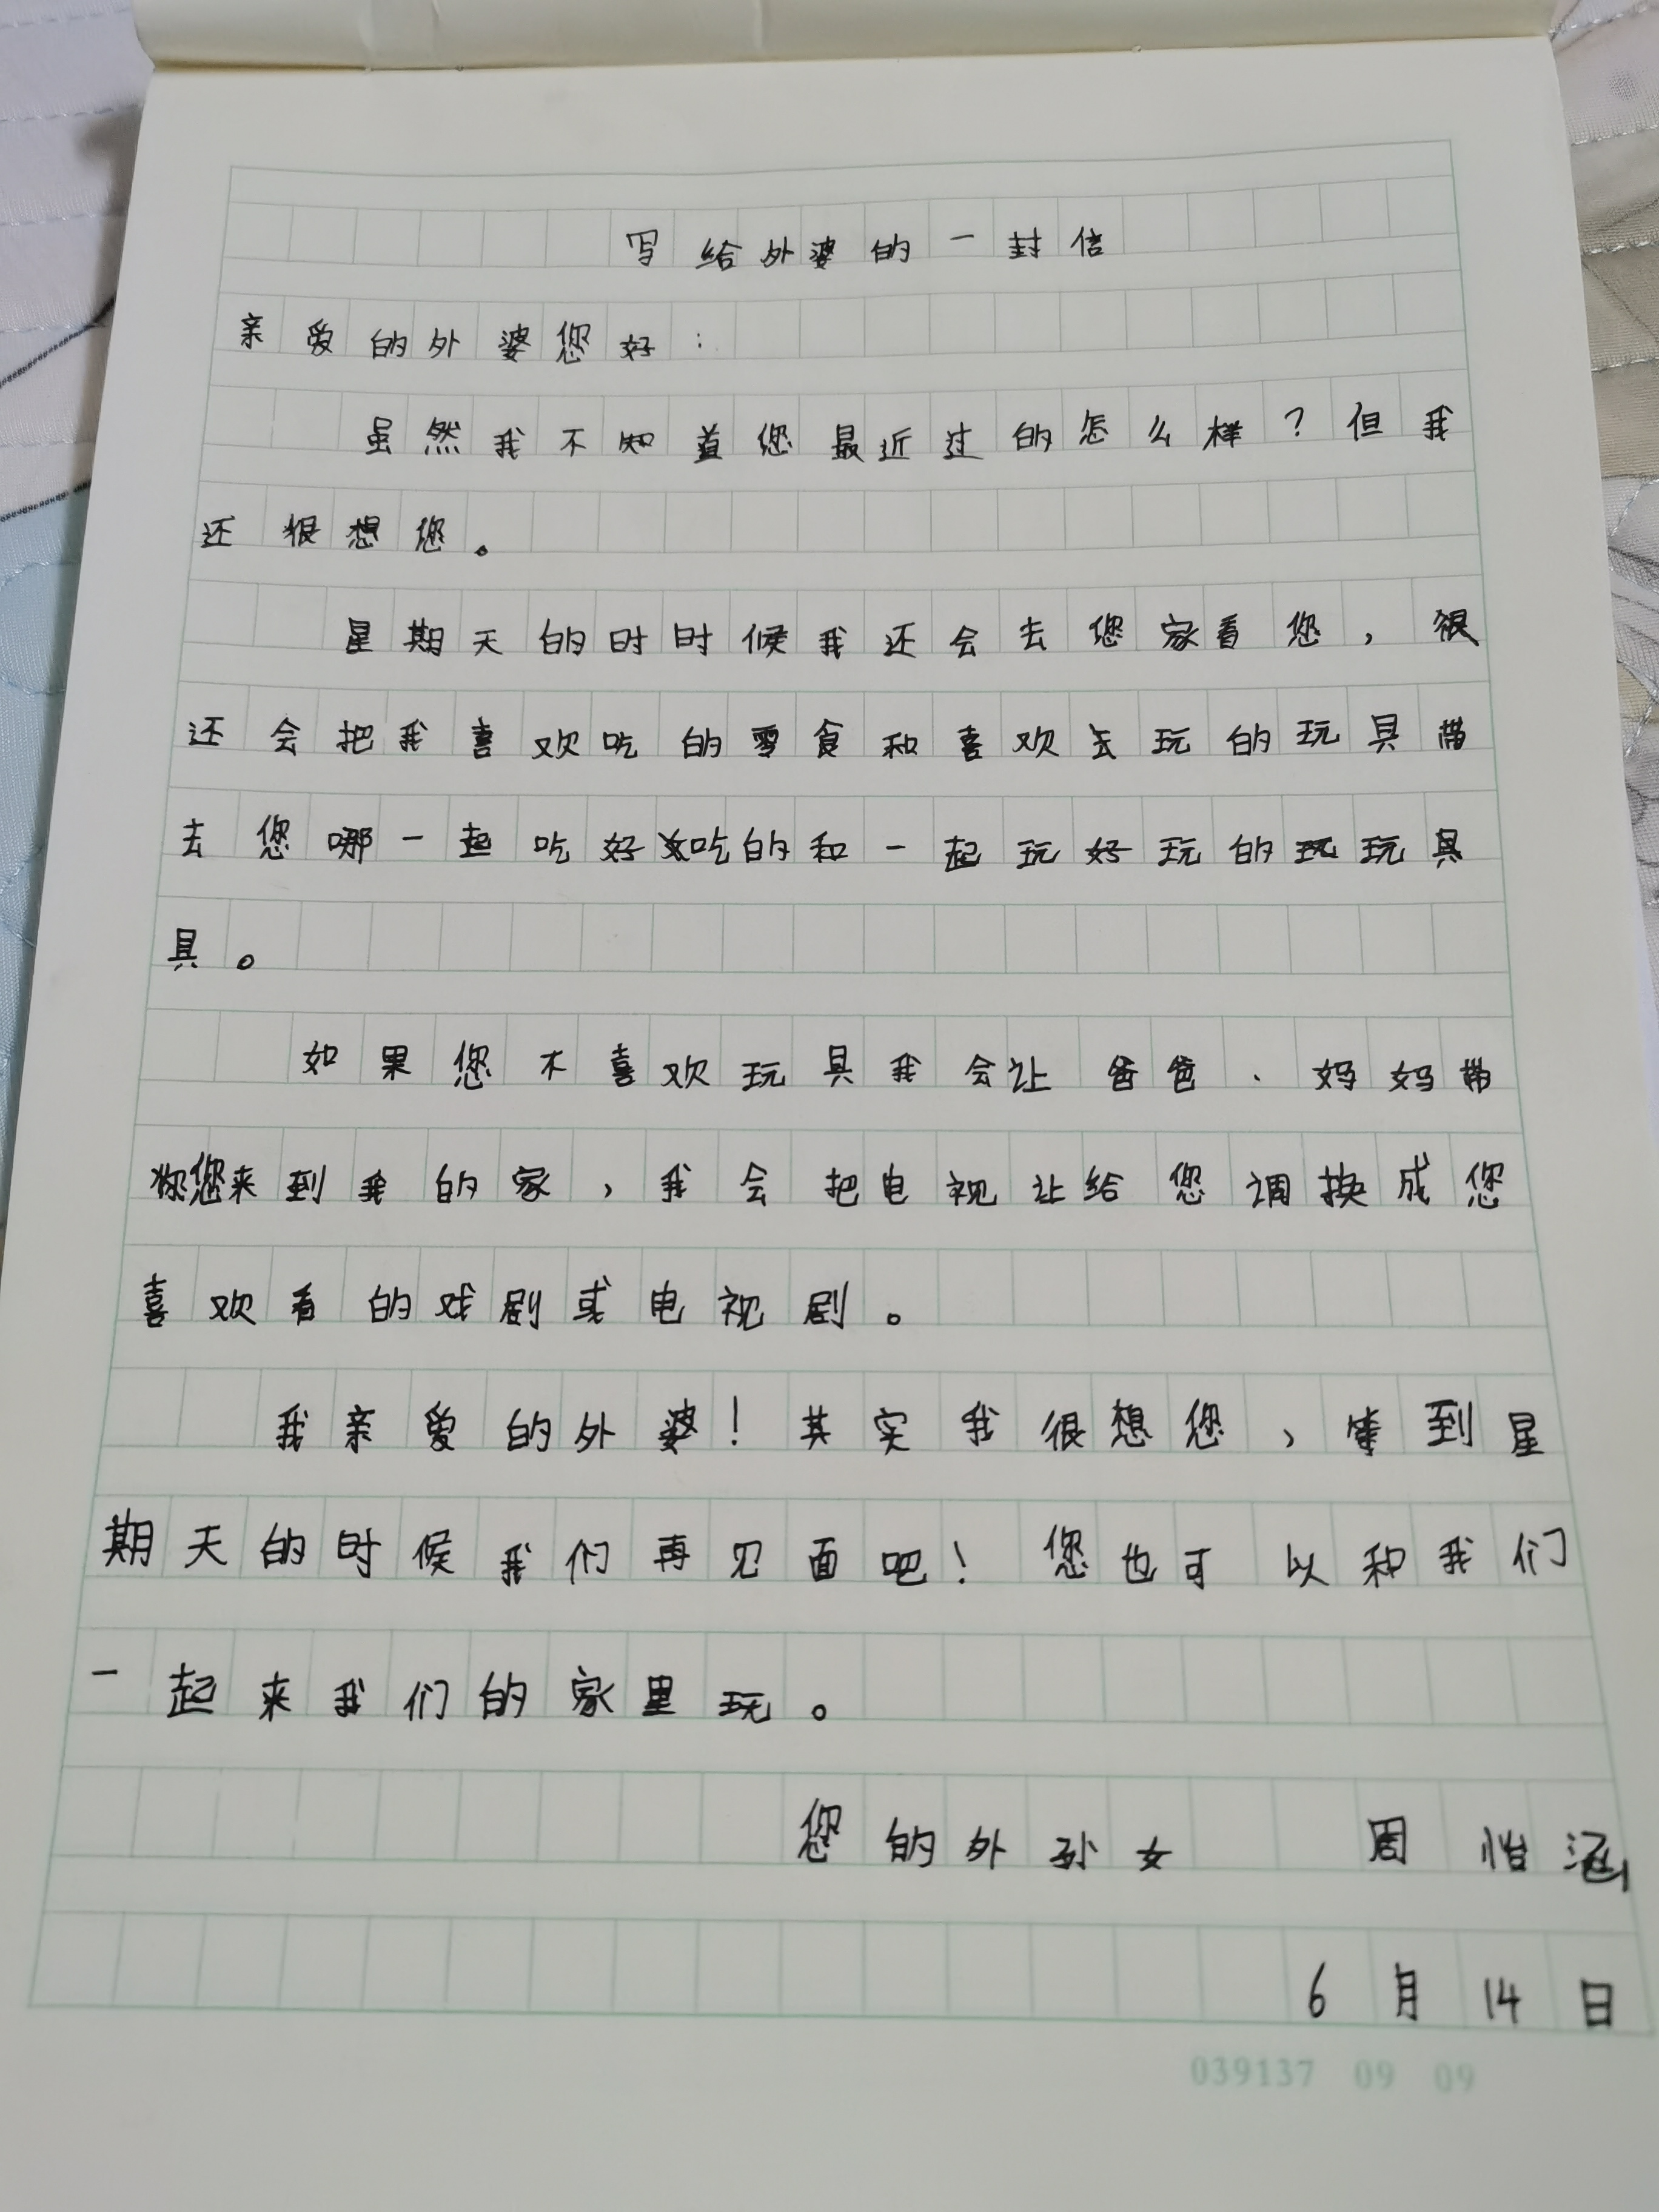 写给外婆的一封信
亲爱的外婆您好：
虽然我不知道您最近过的怎么样？但我
还很想您。
星期天的时时候我还会去您家看您，很
还会把我喜欢吃的零食和喜欢去玩的玩具带
去您哪一起吃好吃的和一起玩好玩的玩玩具
具。
如果您不喜欢玩具我会让爸爸、妈妈带
你您来到我的家，我会把电视让给您调换成您
喜欢看的戏剧或电视剧。
我亲爱的外婆！其实我很想您，等到星
期天的时候我们再见面吧！您也可以和我们
一起来我们的家里玩。
您的外孙女 周怡涵
6月14日
039137 09 09